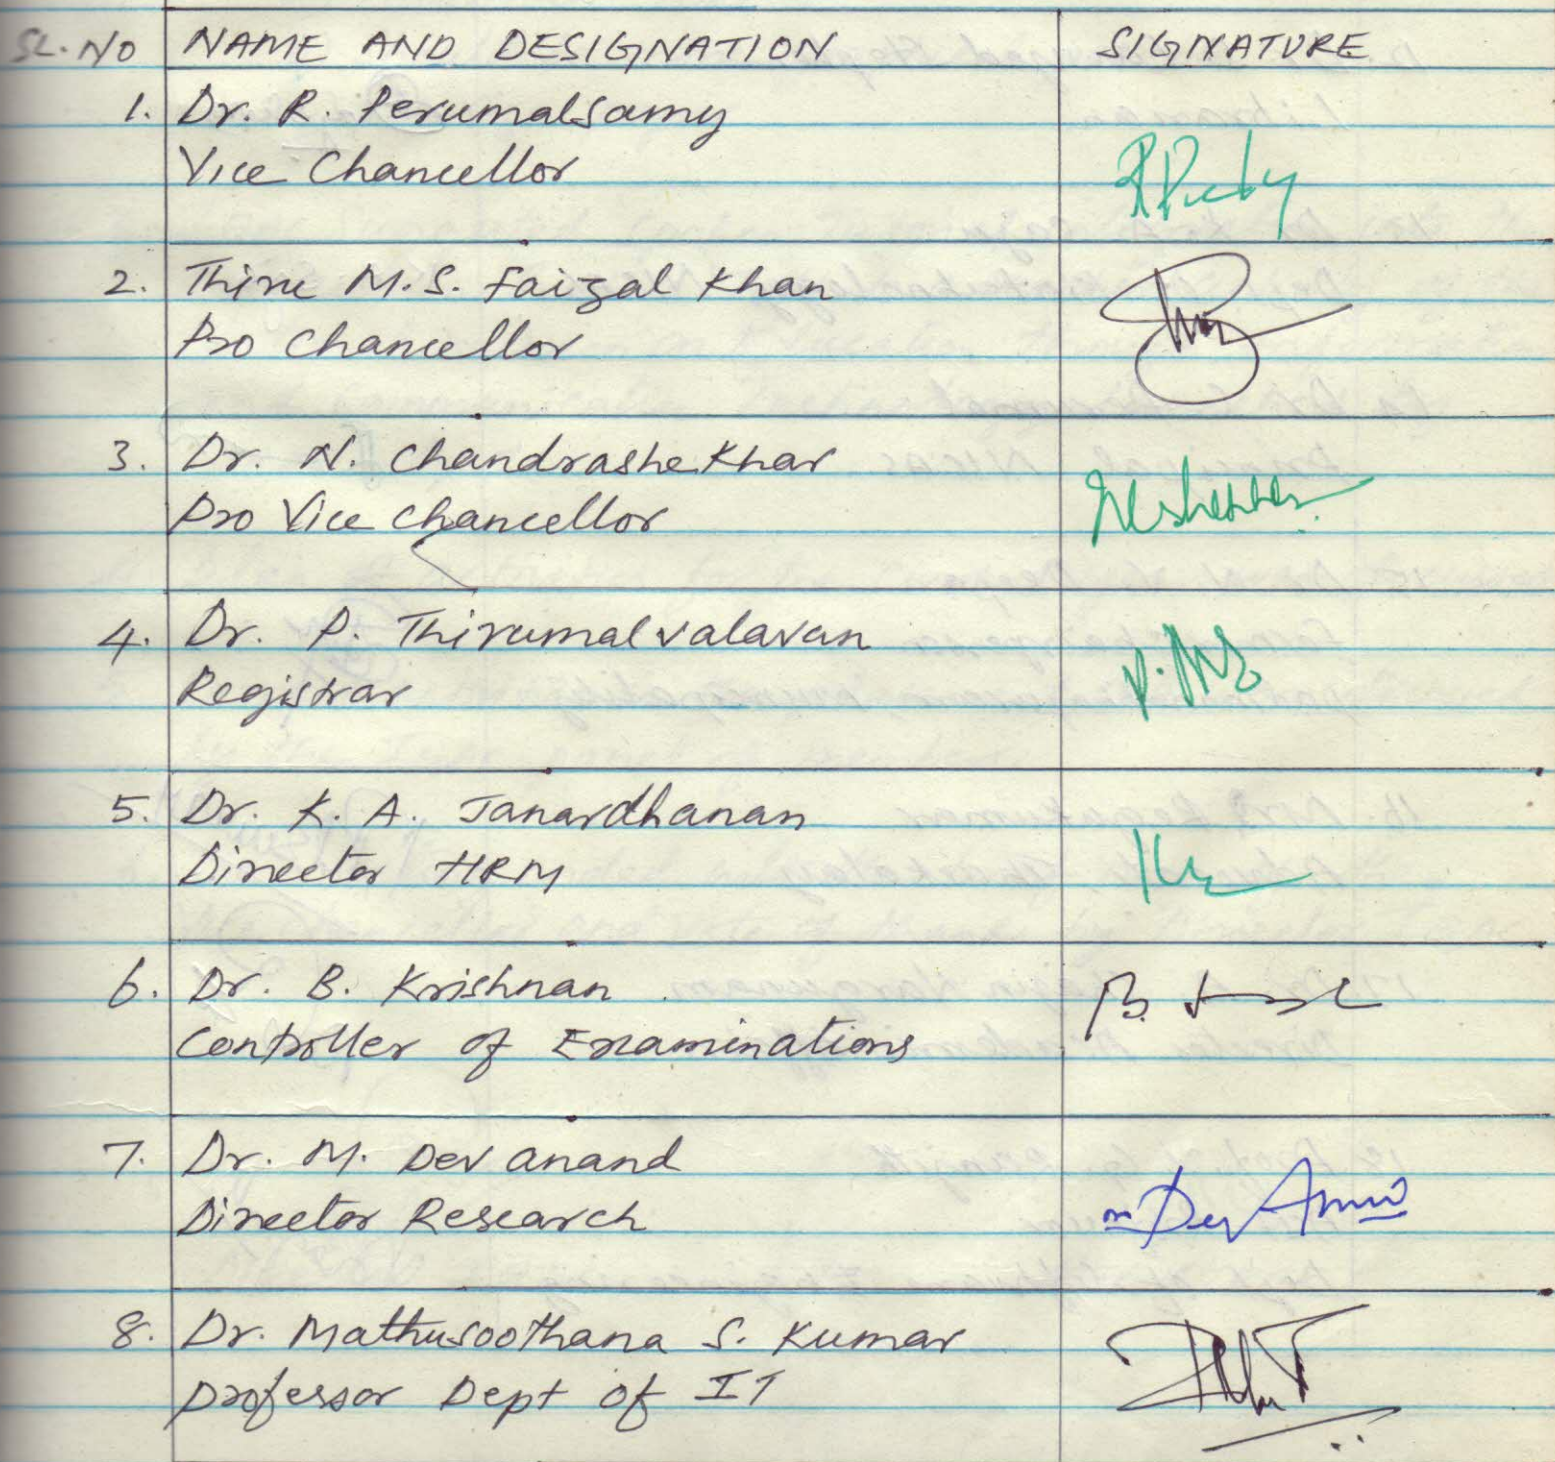 SL. NO NAME AND DESIGNATION SIGNATURE
1. Dr. R. Perumalsamy
Vice Chancellor
2. Thiru M.S. Faizal Khan
Pro Chancellor
3. Dr. N. Chandrashekhar
Pro Vice Chancellor
4. Dr. P. Thirumalvalavan
Registrar
5. Dr. K. A. Janardhanan
Director HRM
6. Dr. B. Krishnan
Controller of Examinations
7. Dr. M. Dev anand
Director Research
8. Dr. Mathusoothana S. Kumar
Professor Dept of IT